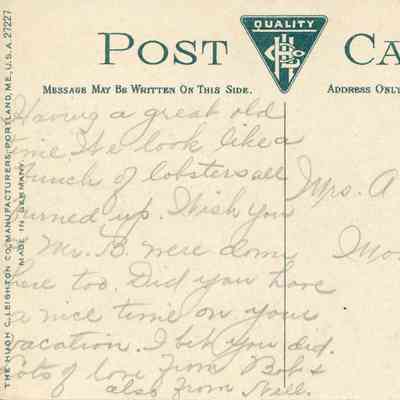 THE HUGH C. LEIGHTON CO., MANUFACTURERS, PORTLAND, ME., U.S.A. 27227
MADE IN GERMANY.
QUALITY
POST CA
MESSAGE MAY BE WRITTEN ON THIS SIDE.
ADDRESS ONL
Having a great old
time. We look like a
bunch of lobsters all
burned up. Wish you
& Mr. B. were down
here too. Did you have
a nice time on your
vacation. I bet you did.
Lots of love from Bob &
also from Nell.
Mrs. A
Mo